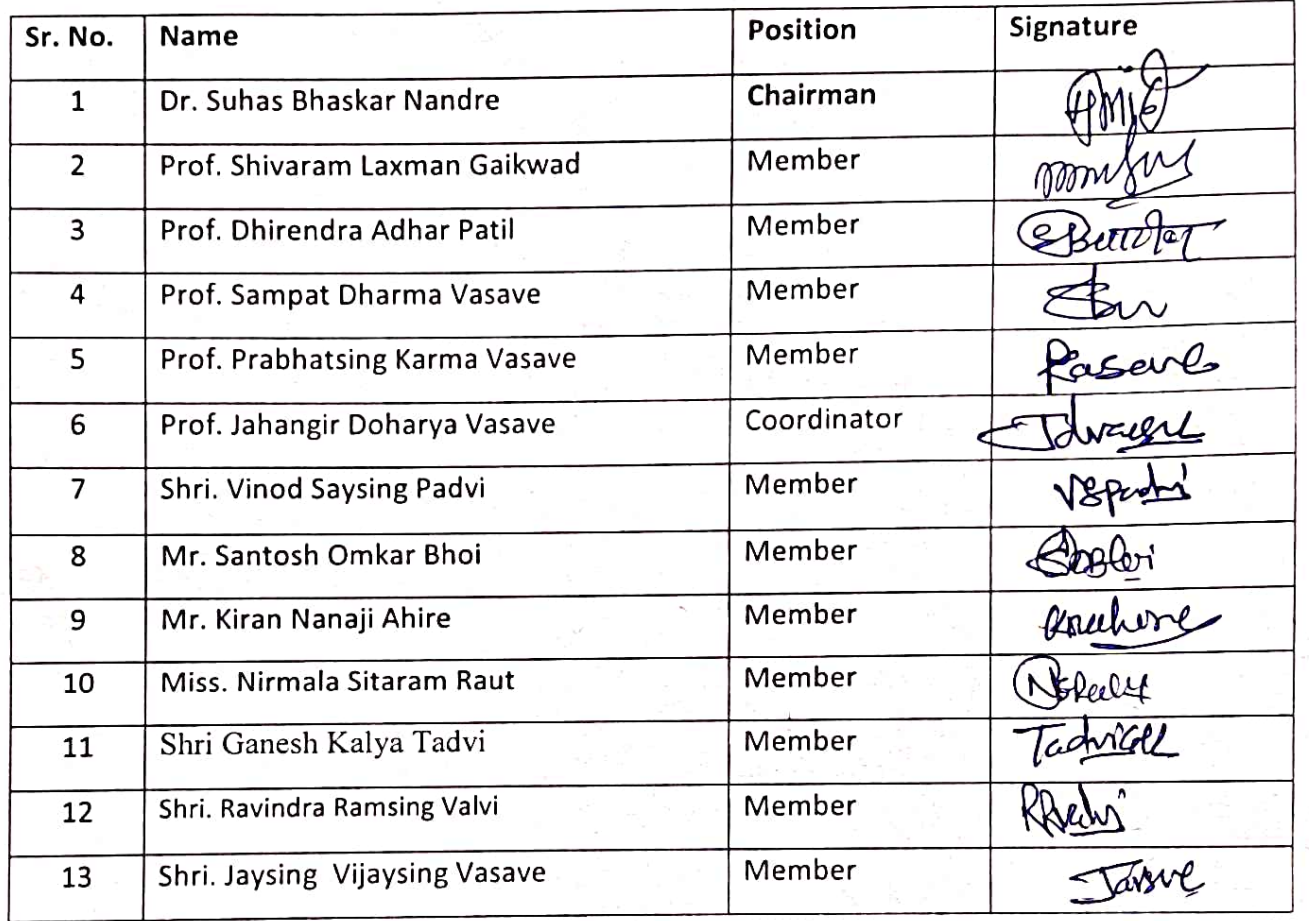 Sr. No. Name Position Signature
1 Dr. Suhas Bhaskar Nandre Chairman
2 Prof. Shivaram Laxman Gaikwad Member
3 Prof. Dhirendra Adhar Patil Member
4 Prof. Sampat Dharma Vasave Member
5 Prof. Prabhatsing Karma Vasave Member
6 Prof. Jahangir Doharya Vasave Coordinator
7 Shri. Vinod Saysing Padvi Member VSPadvi
8 Mr. Santosh Omkar Bhoi Member
9 Mr. Kiran Nanaji Ahire Member
10 Miss. Nirmala Sitaram Raut Member
11 Shri Ganesh Kalya Tadvi Member
12 Shri. Ravindra Ramsing Valvi Member
13 Shri. Jaysing Vijaysing Vasave Member